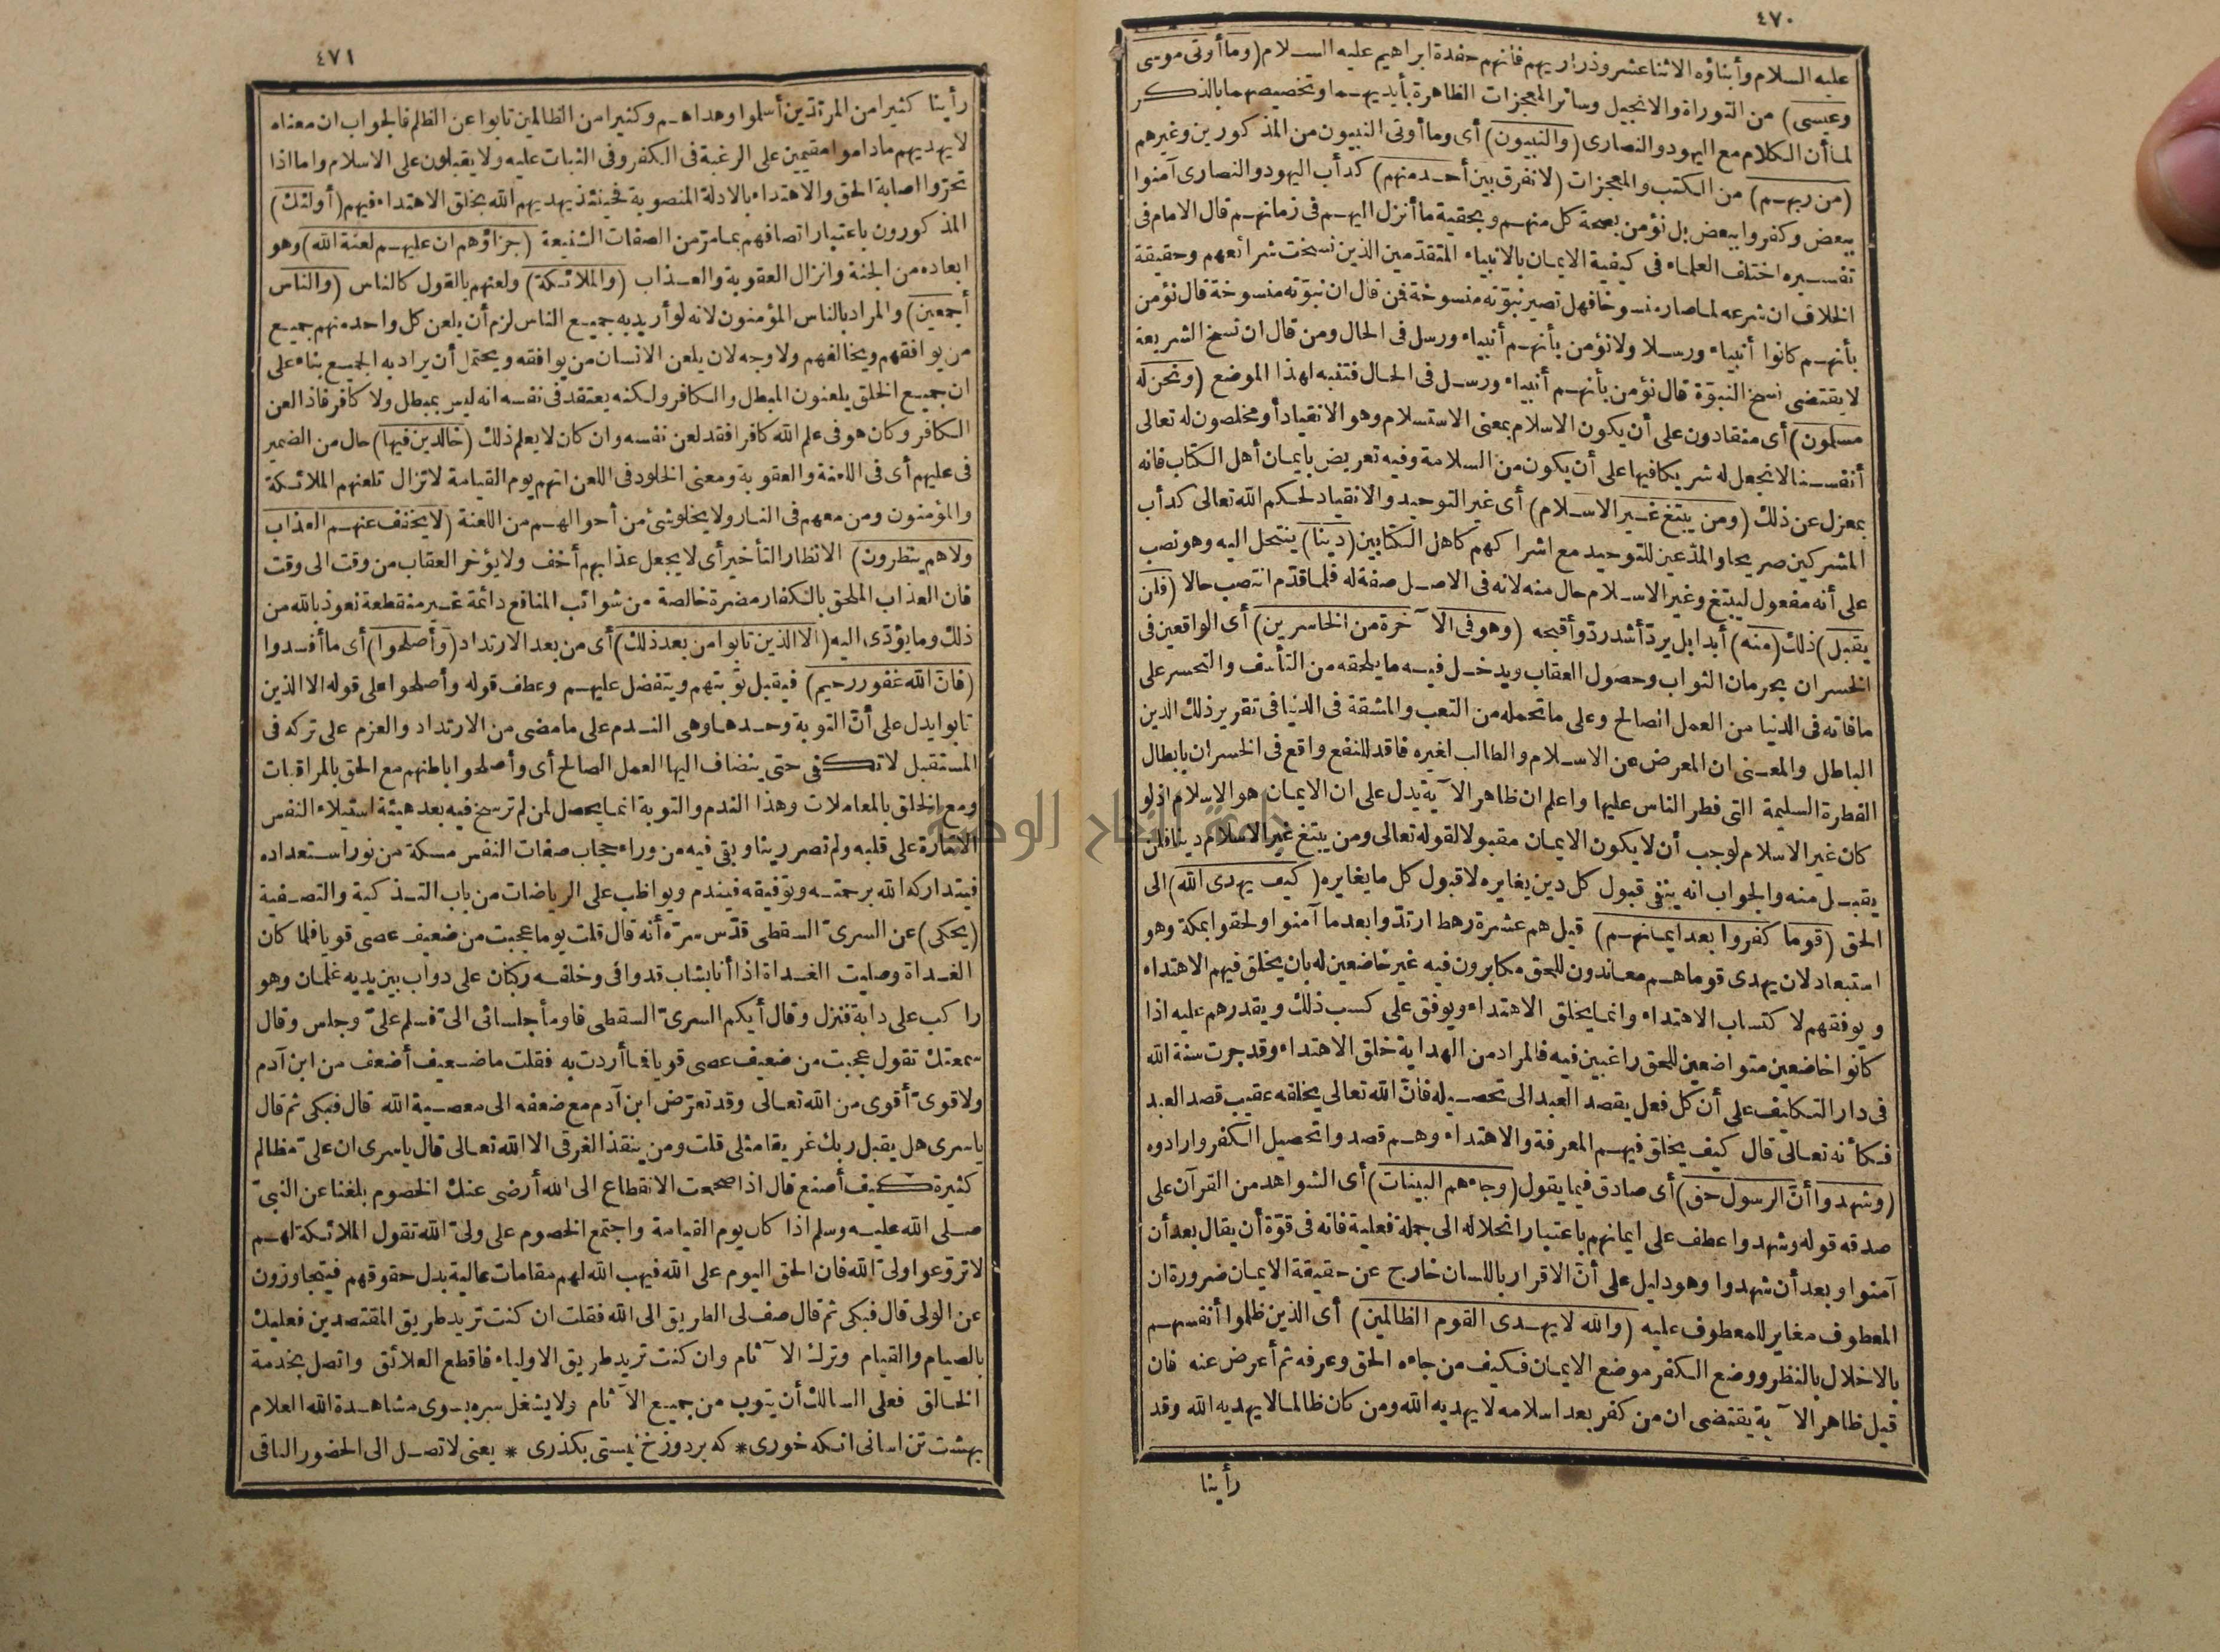 ٤٧٠
عليه السلام وأبناؤه الاثنا عشر وذراريهم فانهم حفدة ابراهيم عليه السلام (وما أوتى موسى
وعيسى) من التوراة والانجيل وسائر المعجزات الظاهرة بأيديهما وتخصيصهما بالذكر
لما أن الكلام مع اليهود والنصارى (والنبيون) أى وما أوتى النبيون من المذكورين وغيرهم
(من ربهم) من الكتب والمعجزات (لا نفرق بين أحد منهم) كدأب اليهود والنصارى آمنوا
ببعض وكفروا ببعض بل نؤمن بصحة كل منهم وبحقية ما أنزل اليهم فى زمانهم قال الامام فى
تفسيره اختلف العلماء فى كيفية الايمان بالانبياء المتقدمين الذين نسخت شرائعهم وحقيقة
الخلاف ان شرعه لما صار منسوخا فهل تصير نبوّته منسوخة فمن قال ان نبوّته منسوخة قال نؤمن
بأنهم كانوا أنبياء ورسلا ولا نؤمن بأنهم أنبياء ورسل فى الحال ومن قال ان نسخ الشريعة
لا يقتضى نسخ النبوّة قال نؤمن بأنهم أنبياء ورسل فى الحال فتنبه لهذا الموضع (ونحن له
مسلمون) أى منقادون على أن يكون الاسلام بمعنى الاستسلام وهو الانقياد أو مخلصون له تعالى
أنفسنا لا نجعل له شريكا فيها على أن يكون من السلامة وفيه تعريض بايمان أهل الكتاب فانه
بمعزل عن ذلك (ومن يبتغ غير الاسلام) أى غير التوحيد والانقياد لحكم الله تعالى كدأب
المشركين صريحا والمدّعين للتوحيد مع اشراكهم كاهل الكتابين (دينا) ينتحل اليه وهو نصب
على أنه مفعول ليبتغ وغير الاسلام حال منه لانه فى الاصل صفة له فلما قدّم انتصب حالا (فلن
يقبل) ذلك (منه) أبدا بل يردّ أشد ردّ وأقبحه (وهو فى الآخرة من الخاسرين) أى الواقعين فى
الخسران بحرمان الثواب وحصول العقاب ويدخل فيه ما يلحقه من التأسف والتحسر على
ما فاته فى الدنيا من العمل الصالح وعلى ما تحمله من التعب والمشقة فى الدنيا فى تقرير ذلك الدين
الباطل والمعنى ان المعرض عن الاسلام والطالب لغيره فاقد للنفع واقع فى الخسران بابطال
الفطرة السليمة التى فطر الناس عليها واعلم ان ظاهر الآية يدل على ان الايمان هو الاسلام اذ لو
كان غير الاسلام لوجب أن لا يكون الايمان مقبولا لقوله تعالى ومن يبتغ غير الاسلام دينا فلن
يقبل منه والجواب انه ينفى قبول كل دين يغايره لا قبول كل ما يغايره (كيف يهدى الله) الى
الحق (قوما كفروا بعد ايمانهم) قيل هم عشرة رهط ارتدّوا بعد ما آمنوا ولحقوا بمكة وهو
استبعاد لان يهدى قوما هم معاندون للحق مكابرون فيه غير خاضعين له بان يخلق فيهم الاهتداء
ويوفقهم لاكتساب الاهتداء وانما يخلق الاهتداء ويوفق على كسب ذلك ويقدرهم عليه اذا
كانوا خاضعين متواضعين للحق راغبين فيه فالمراد من الهداية خلق الاهتداء وقد جرت سنة الله
فى دار التكليف على أن كل فعل يقصد العبد الى تحصيله فانّ الله تعالى يخلقه عقيب قصد العبد
فكأنه تعالى قال كيف يخلق فيهم المعرفة والاهتداء وهم قصدوا تحصيل الكفر وارادوه
(وشهدوا أنّ الرسول حق) أى صادق فيما يقول (وجاءهم البينات) أى الشواهد من القرآن على
صدقه قوله وشهدوا عطف على ايمانهم باعتبار انحلاله الى جملة فعلية فانه فى قوّة أن يقال بعد أن
آمنوا وبعد أن شهدوا وهو دليل على أنّ الاقرار باللسان خارج عن حقيقة الايمان ضرورة ان
المعطوف مغاير للمعطوف عليه (والله لا يهدى القوم الظالمين) أى الذين ظلموا أنفسهم
بالاخلال بالنظر ووضع الكفر موضع الايمان فكيف من جاءه الحق وعرفه ثم أعرض عنه فان
قيل ظاهر الآية يقتضى ان من كفر بعد اسلامه لا يهديه الله ومن كان ظالما لا يهديه الله وقد
رأينا
٤٧١
رأينا كثيرا من المرتدّين أسلموا وهداهم وكثيرا من الظالمين تابوا عن الظلم فالجواب ان معناه
لا يهديهم ما داموا مقيمين على الرغبة فى الكفر وفى الثبات عليه ولا يقبلون على الاسلام واما اذا
تحرّوا اصابة الحق والاهتداء بالادلة المنصوبة فحينئذ يهديهم الله بخلق الاهتداء فيهم (أولئك)
المذكورون باعتبار اتصافهم بما مرّ من الصفات الشنيعة (جزاؤهم ان عليهم لعنة الله) وهو
ابعاده من الجنة وانزال العقوبة والعذاب (والملائكة) ولعنهم بالقول كالناس (والناس
أجمعين) والمراد بالناس المؤمنون لانه لو أريد به جميع الناس لزم أن يلعن كل واحد منهم جميع
من يوافقهم ويخالفهم ولا وجه لان يلعن الانسان من يوافقه ويحتمل أن يراد به الجميع بناء على
ان جميع الخلق يلعنون المبطل والكافر ولكنه يعتقد فى نفسه انه ليس بمبطل ولا كافر فاذا لعن
الكافر وكان هو فى علم الله كافرا فقد لعن نفسه وان كان لا يعلم ذلك (خالدين فيها) حال من الضمير
فى عليهم أى فى اللعنة والعقوبة ومعنى الخلود فى اللعن انهم يوم القيامة لا تزال تلعنهم الملائكة
والمؤمنون ومن معهم فى النار ولا يخلو شئ من أحوالهم من اللعنة (لا يخفف عنهم العذاب
ولا هم ينظرون) الانظار التأخير أى لا يجعل عذابهم أخف ولا يؤخر العقاب من وقت الى وقت
فان العذاب الملحق بالكفار مضرة خالصة من شوائب المنافع دائمة غير منقطعة نعوذ بالله من
ذلك وما يؤدّى اليه (الا الذين تابوا من بعد ذلك) أى من بعد الارتداد (وأصلحوا) أى ما أفسدوا
(فانّ الله غفور رحيم) فيقبل توبتهم ويتفضل عليهم وعطف قوله وأصلحوا على قوله الا الذين
تابوا يدل على أنّ التوبة وحدها وهى الندم على ما مضى من الارتداد والعزم على تركه فى
المستقبل لا تكفى حتى ينضاف اليها العمل الصالح أى وأصلحوا باطنهم مع الحق بالمراقبات
ومع الخلق بالمعاملات وهذا الندم والتوبة انما يحصل لمن لم ترسخ فيه بعد هيئة استيلاء النفس
الامّارة على قلبه ولم تصر رينا وبقى فيه من وراء حجاب صفات النفس مسكة من نور استعداده
فيتداركه الله برحمته وتوفيقه فيندم ويواظب على الرياضات من باب التزكية والتصفية
(يحكى) عن السرىّ السقطى قدّس سرّه أنه قال قلت يوما عجبت من ضعيف عصى قويا فلما كان
الغداة وصليت الغداة اذا أنا بشاب قد وافى وخلفه ركبان على دواب بين يديه غلمان وهو
راكب على دابة فنزل وقال أيكم السرىّ السقطى فاومأ جلسائى الىّ فسلم علىّ وجلس وقال
سمعتك تقول عجبت من ضعيف عصى قويا فما أردت به فقلت ما ضعيف أضعف من ابن آدم
ولا قوىّ أقوى من الله تعالى وقد تعرّض ابن آدم مع ضعفه الى معصية الله قال فبكى ثم قال
يا سرى هل يقبل ربك غريقا مثلى قلت ومن ينقذ الغرقى الا الله تعالى قال يا سرى ان علىّ مظالم
كثيرة كيف أصنع قال اذا صححت الانقطاع الى الله أرضى عنك الخصوم بلغنا عن النبىّ
صلى الله عليه وسلم اذا كان يوم القيامة واجتمع الخصوم على ولىّ الله تقول الملائكة لهم
لا تروّعوا ولىّ الله فان الحق اليوم على الله فيهب الله لهم مقامات عالية بدل حقوقهم فيتجاوزون
عن الولى قال فبكى ثم قال صف لى الطريق الى الله فقلت ان كنت تريد طريق المقتصدين فعليك
بالصيام والقيام وترك الآثام وان كنت تريد طريق الاولياء فاقطع العلائق واتصل بخدمة
الخالق فعلى السالك أن يتوب من جميع الآثام ولا يشغل سره بسوى مشاهدة الله العلام
بهشت تن اسانى انكه خورى * كه بر دوزخ نيستى بكذرى * يعنى لا تصل الى الحضور الباقى